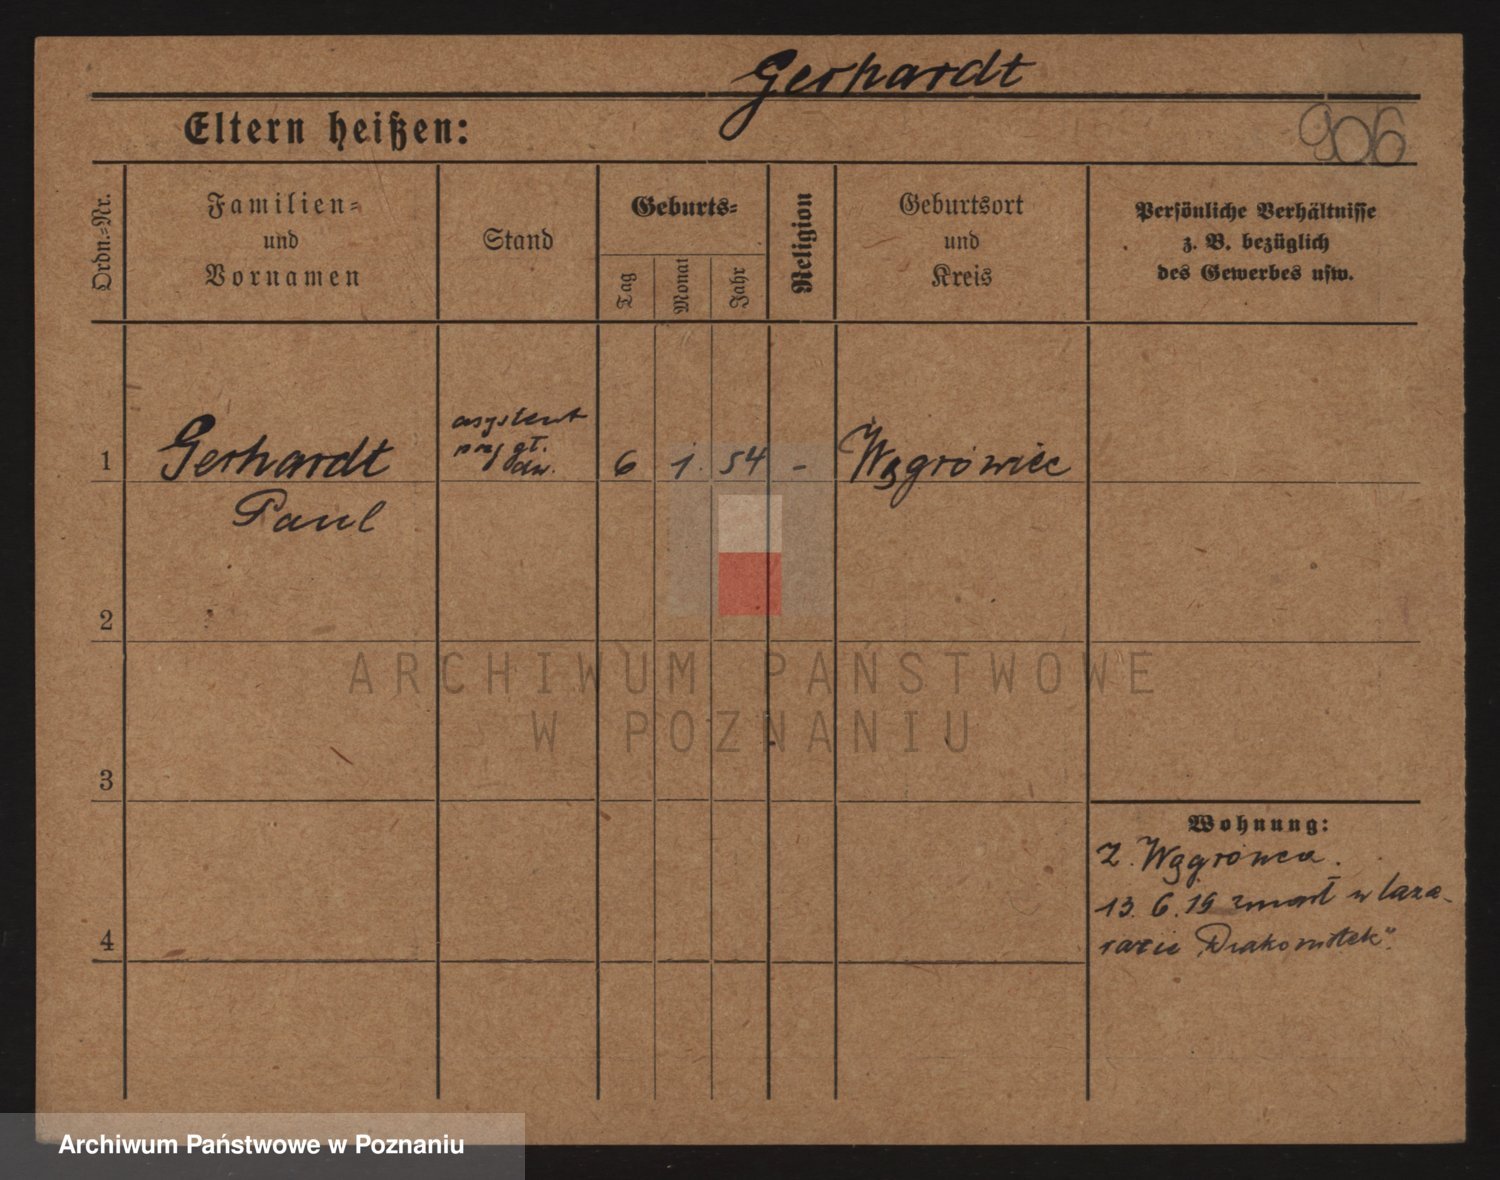 Gerhardt
Eltern heißen:
906
Ordn.-Nr.
Familien-
und
Vornamen
Stand
Geburts-
Tag
Monat
Jahr
Religion
Geburtsort
und
Kreis
Persönliche Verhältnisse
z. B. bezüglich
des Gewerbes usw.
asystent
przy gł.
dw.
1 Gerhardt 6 1. 54 - Wągrówiec
Paul
2
ARCHIWUM PAŃSTWOWE
W POZNANIU
3
Wohnung:
Z. Wągrówca.
13. 6. 19 zmarł w laza-
4
recie
Archiwum Państwowe w Poznaniu